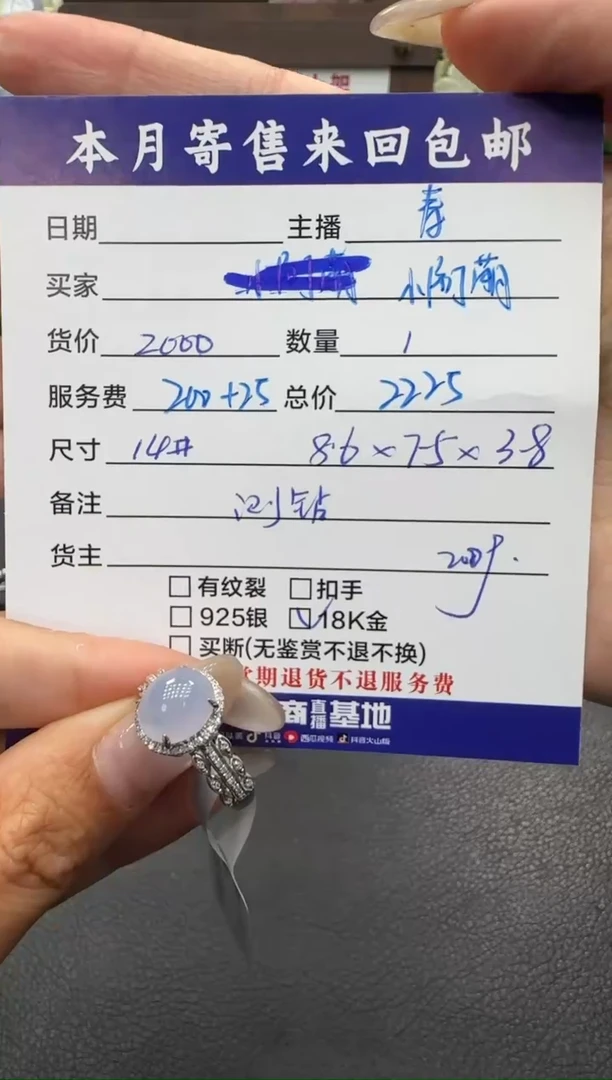 本月寄售来回包邮
日期 主播 春
买家 小阿萌
货价 2000 数量 1
服务费 200+25 总价 2225
尺寸 14# 8.6×7.5×3.8
备注 测钻
货主
□有纹裂 □扣手
□925银 ☑18K金
□买断(无鉴赏不退不换)
期退货不退服务费
商直播基地
西瓜视频 抖音火山版